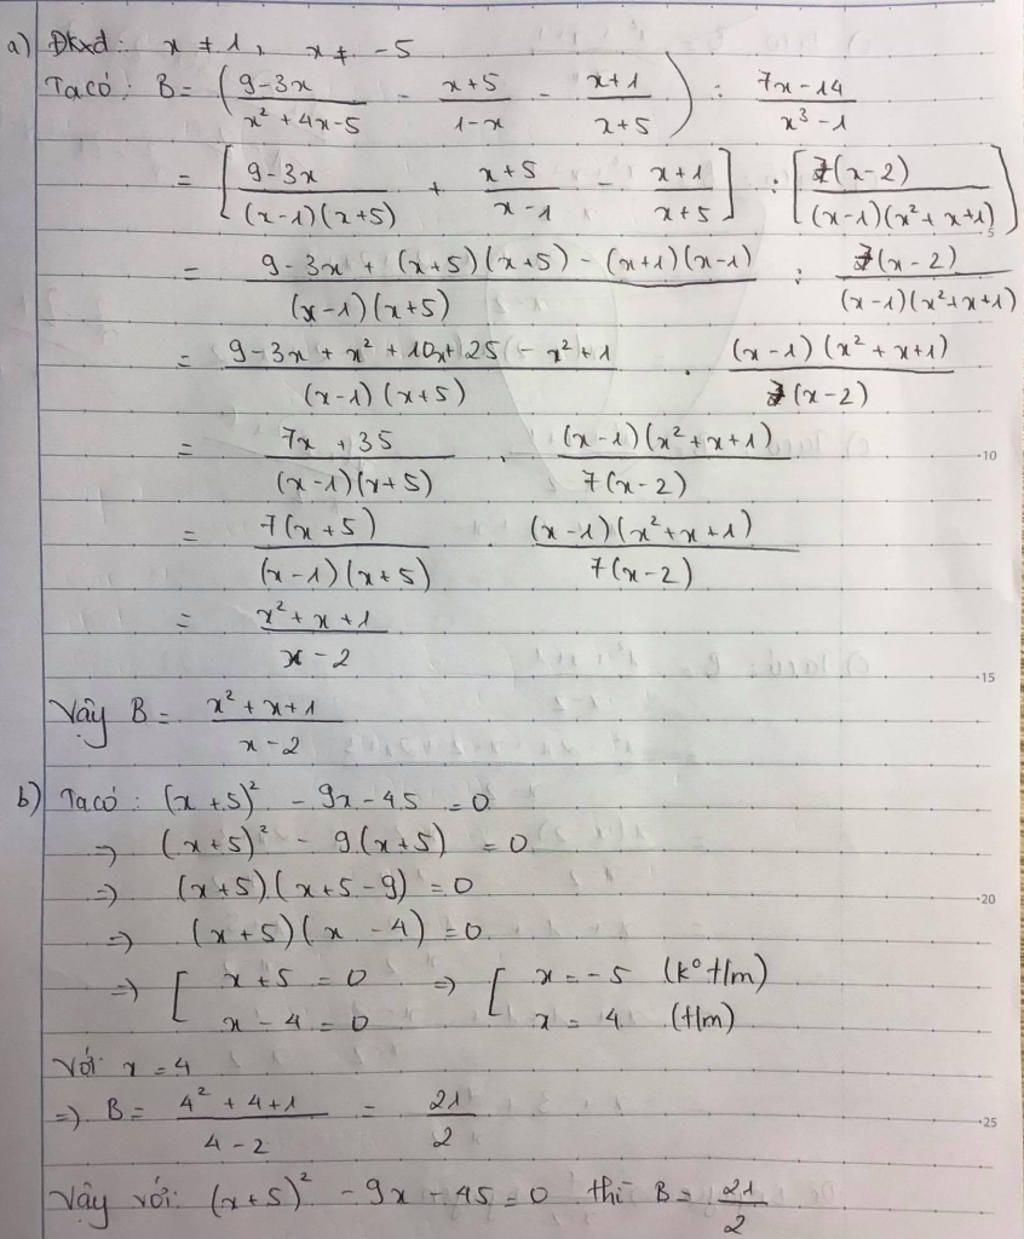 a) Đkxđ: x ≠ 1, x ≠ -5
Ta có: B = ( (9-3x)/(x² + 4x-5) - (x+5)/(1-x) - (x+1)/(x+5) ) : (7x-14)/(x³-1)
= [ (9-3x)/((x-1)(x+5)) + (x+5)/(x-1) - (x+1)/(x+5) ] : [ 7(x-2)/((x-1)(x²+x+1)) ]
= (9-3x + (x+5)(x+5) - (x+1)(x-1))/((x-1)(x+5)) : 7(x-2)/((x-1)(x²+x+1))
= (9-3x + x² + 10x+25 - x² + 1)/((x-1)(x+5)) . (x-1)(x²+x+1)/(7(x-2))
= (7x+35)/((x-1)(x+5)) . (x-1)(x²+x+1)/(7(x-2))
10
= 7(x+5)/((x-1)(x+5)) . (x-1)(x²+x+1)/(7(x-2))
= (x²+x+1)/(x-2)
15
Vậy B = (x²+x+1)/(x-2)
b) Ta có: (x+5)² - 9x-45 = 0
=> (x+5)² - 9(x+5) = 0
=> (x+5)(x+5-9) = 0
20
=> (x+5)(x-4) = 0
=> [ x+5 = 0 => [ x = -5 (k° t/m)
x-4 = 0 x = 4 (t/m)
Với x = 4
=> B = (4²+4+1)/(4-2) = 21/2
25
Vậy với: (x+5)² - 9x - 45 = 0 thì B = 21/2